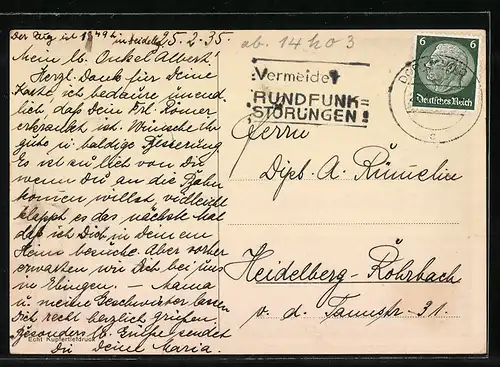 Der Zug ist 18 49 h in Heidelbg.
25.2.35.
Mein lb. Onkel Albert!
Herzl. Dank für Deine
Karte, ich bedaure unend-
lich, daß Dein Frl. Römer
erkrankt ist. Wünsche ihr
gute u. baldige Besserung.
Es ist zu lieb von Dir
wenn Du an die Bahn
kommen willst, vielleicht
klappt es das nächste Mal
daß ich Dich in Deinem
Heime besuche. Aber vorher
erwarten wir Dich bei uns
in Ebingen. – Mama
u. meine Geschwister lassen
Dich recht herzlich grüßen
Besonders lb. Grüße sendet
Dir Deine Maria.
Echt Kupfertiefdruck
ab. 14 h 03
Vermeidet
RUNDFUNK=
STÖRUNGEN!
6 6
Deutsches Reich
c
Herrn
Dipl. A. Rümelin
Heidelberg-Rohrbach
v. d. Tannstr. 31.